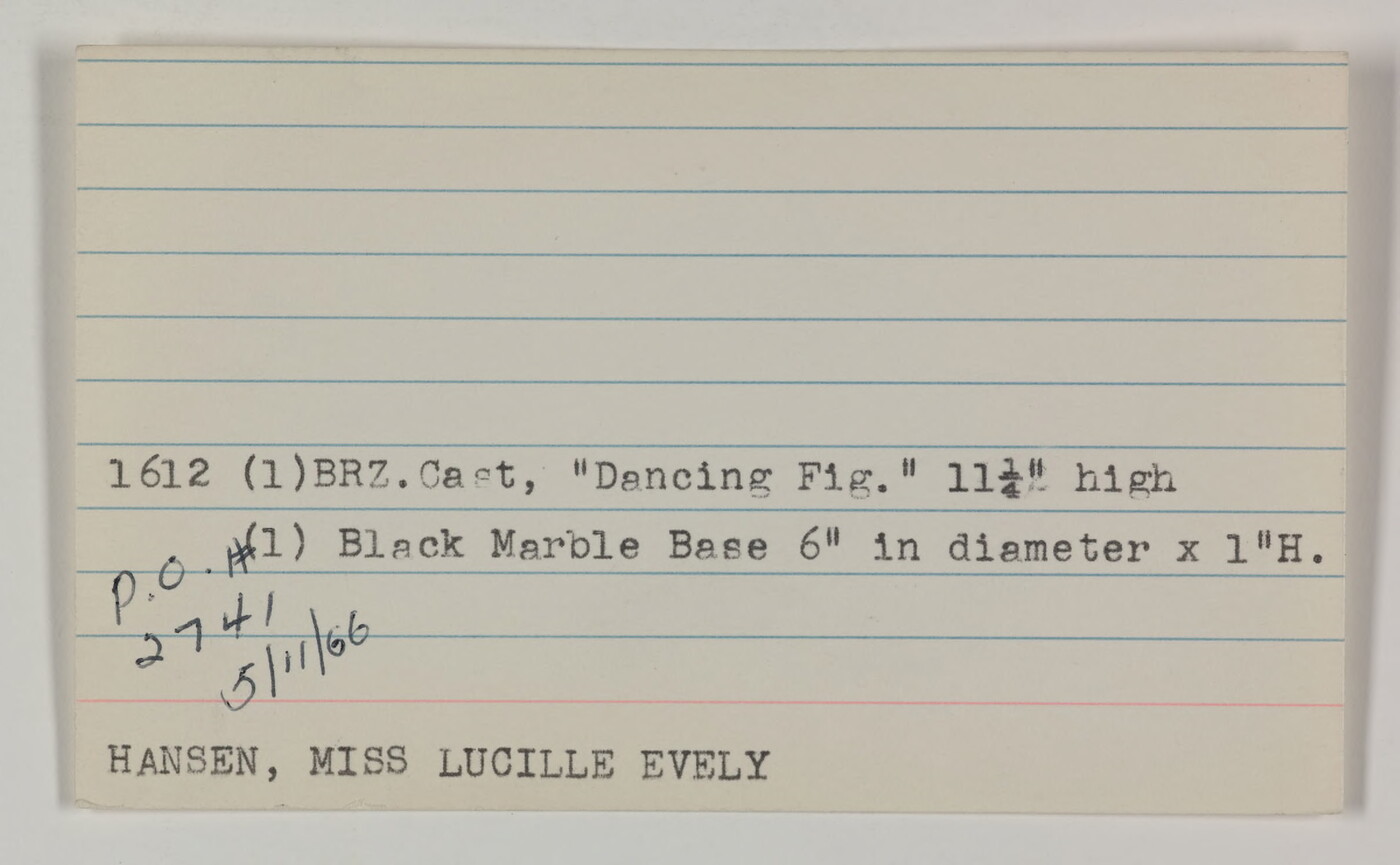 1612 (1)BRZ.Cast, "Dancing Fig." 11¼" high
(1) Black Marble Base 6" in diameter x 1"H.
P.O. #
2741
5/11/66
HANSEN, MISS LUCILLE EVELY